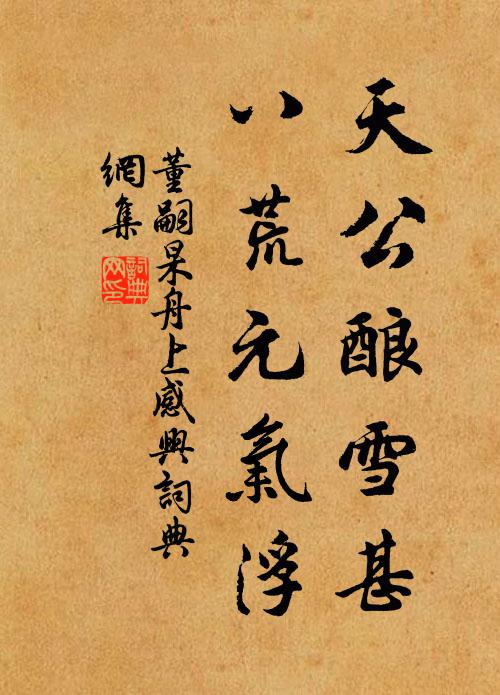 天公酿雪甚
八荒元氣浮
董嗣杲舟上感興詞典
網集
詞典網印